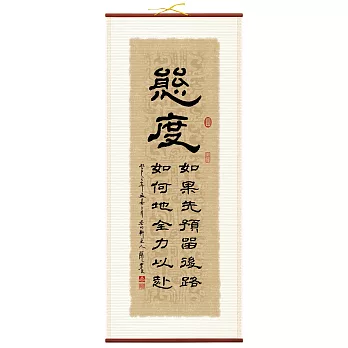 態度
如果先預留後路
如何地全力以赴